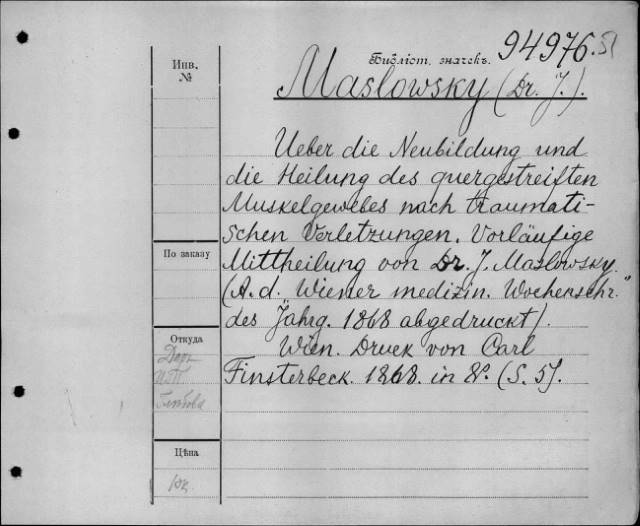 94976.51
Библіот. значекъ.
Инв.
№
Maslowsky (Dr. J.).
Ueber die Neubildung und
die Heilung des quergestreiften
Muskelgewebes nach traumati-
schen Verletzungen. Vorläufige
По заказу
Mittheilung von Dr. J. Maslowsky.
(A. d. "Wiener medizin. Wochenschr."
des Jahrg. 1868 abgedruckt).
Откуда
Wien. Druck von Carl
Finsterbeck. 1868. in 8°. (S. 5).
Цѣна